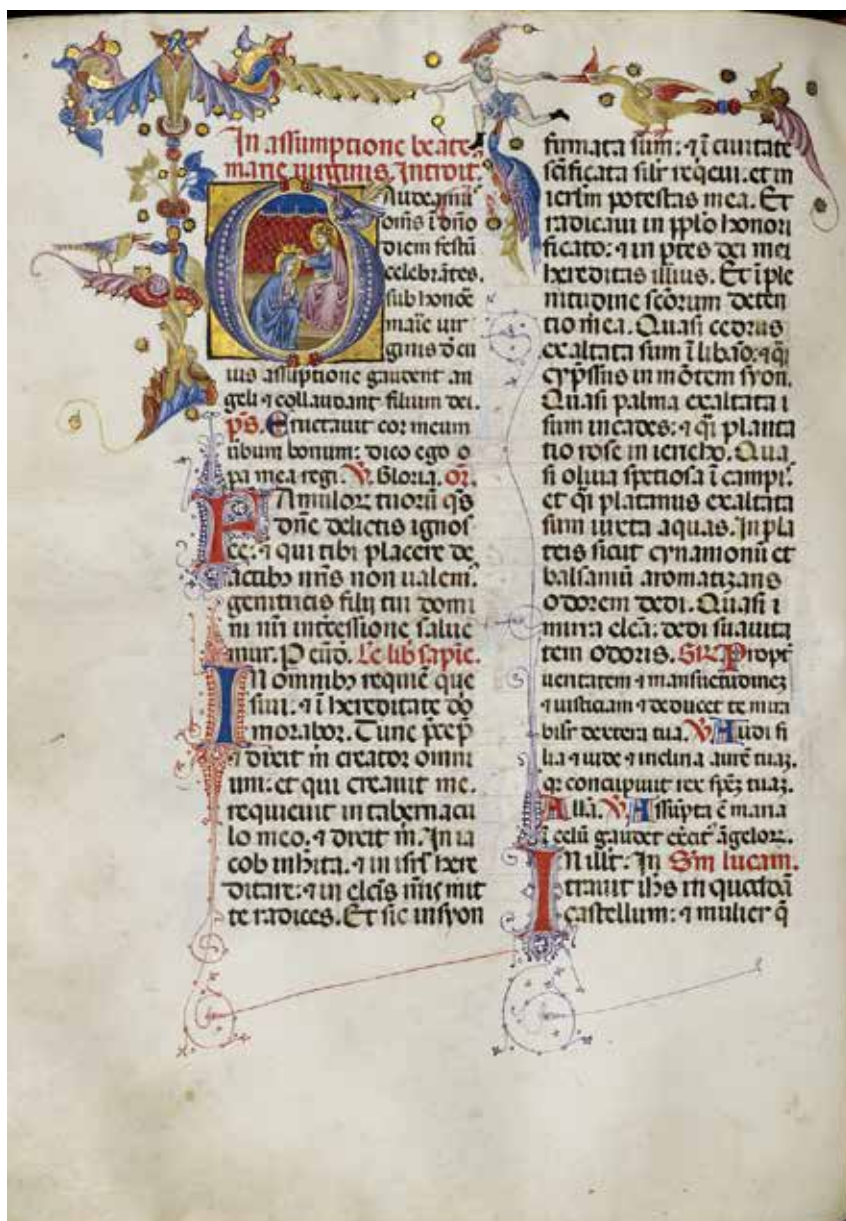 In assumptione beate
marie virginis. Introit.
Gaudeamus
om̄s ī dn̄o
diem festū
celebrātes.
sub honoꝛe
marīe uir
ginis d̄ cu
ius assūptione gaudent an
geli ⁊ collaudant filium dei.
p̄s. Eructauit cor meum
ūbum bonum: dico ego o
pa mea regi. V̄. Gloria. or̄.
Famuloꝝ tuorū q̄s
dōne delictis ignos
ce: ⁊ qui tibi placere de
actibꝰ nr̄is non ualem̄.
genitricis filij tui domi
ni nr̄i int̄cessione salue
mur. P eūd. Le lib sapīe.
In omnibꝰ requiē que
siui. ⁊ ī hereditate do
morabor. Tunc p̄cep̄
⁊ dixit m̄ creator omni
um: et qui creauit me.
requieuit in tabernacu
lo meo. ⁊ dixit m̄. In ia
cob inhita. ⁊ in isrl̄ here
ditare: ⁊ in elcīs m̄is mit
te radices. Et sic in syon
firmata sum: ⁊ ī ciuitate
sc̄ificata silr̄ reqeui. et in
ierlm̄ potestas mea. Et
radicaui in pp̄lo honori
ficato: ⁊ in ptes dei mei
hereditas illius. Et ī ple
nitudine sc̄orum deten
tio mea. Quasi cedrus
exaltata sum ī libāo: ⁊ q̄i
cyp̄ssus in mōtem syon.
Quasi palma exaltata i
sum in cades: ⁊ q̄i planta
tio rose in iericho. Qua
si oliua spetiosa ī campis.
et q̄i platanus exaltata
sum iuxta aquas. In pla
teis sicut cynamonū et
balsamū aromatizans
odorem dedi. Quasi i
mirra elc̄a: dedi suauita
tem odoris. GR̄. Propt̄
ueritatem ⁊ mansuetudinez
⁊ iusticiam ⁊ deducet te mira
bilr̄ dextera tua. V̄. Audi fi
lia ⁊ uide ⁊ inclina aurē tuaꝫ.
qꝛ concupiuit rex speꝫ tuaꝫ.
Alla. V̄. Assūpta ē maria
ī celū gaudet exc̄it āgeloꝝ.
In illr̄. In Sm̄ lucam.
trauit ihs̄ in quoddā
castellum: ⁊ mulier q̄